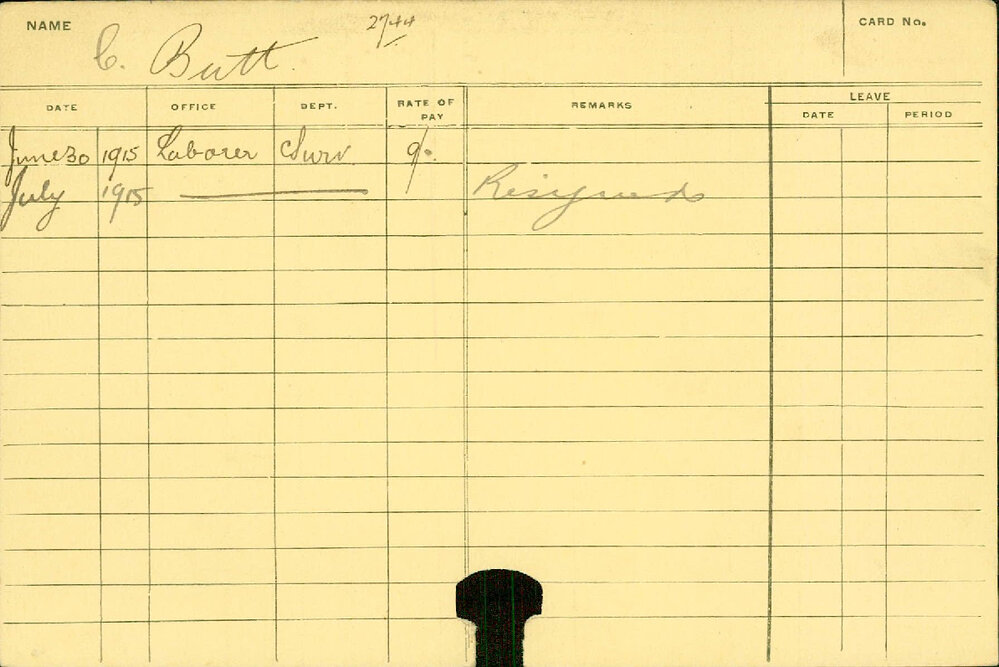 NAME C. Butt 2744 CARD No.
DATE OFFICE DEPT. RATE OF PAY REMARKS LEAVE
DATE PERIOD
June 30 1915 Laborer Surv. 9/-
July 1915 Resigned